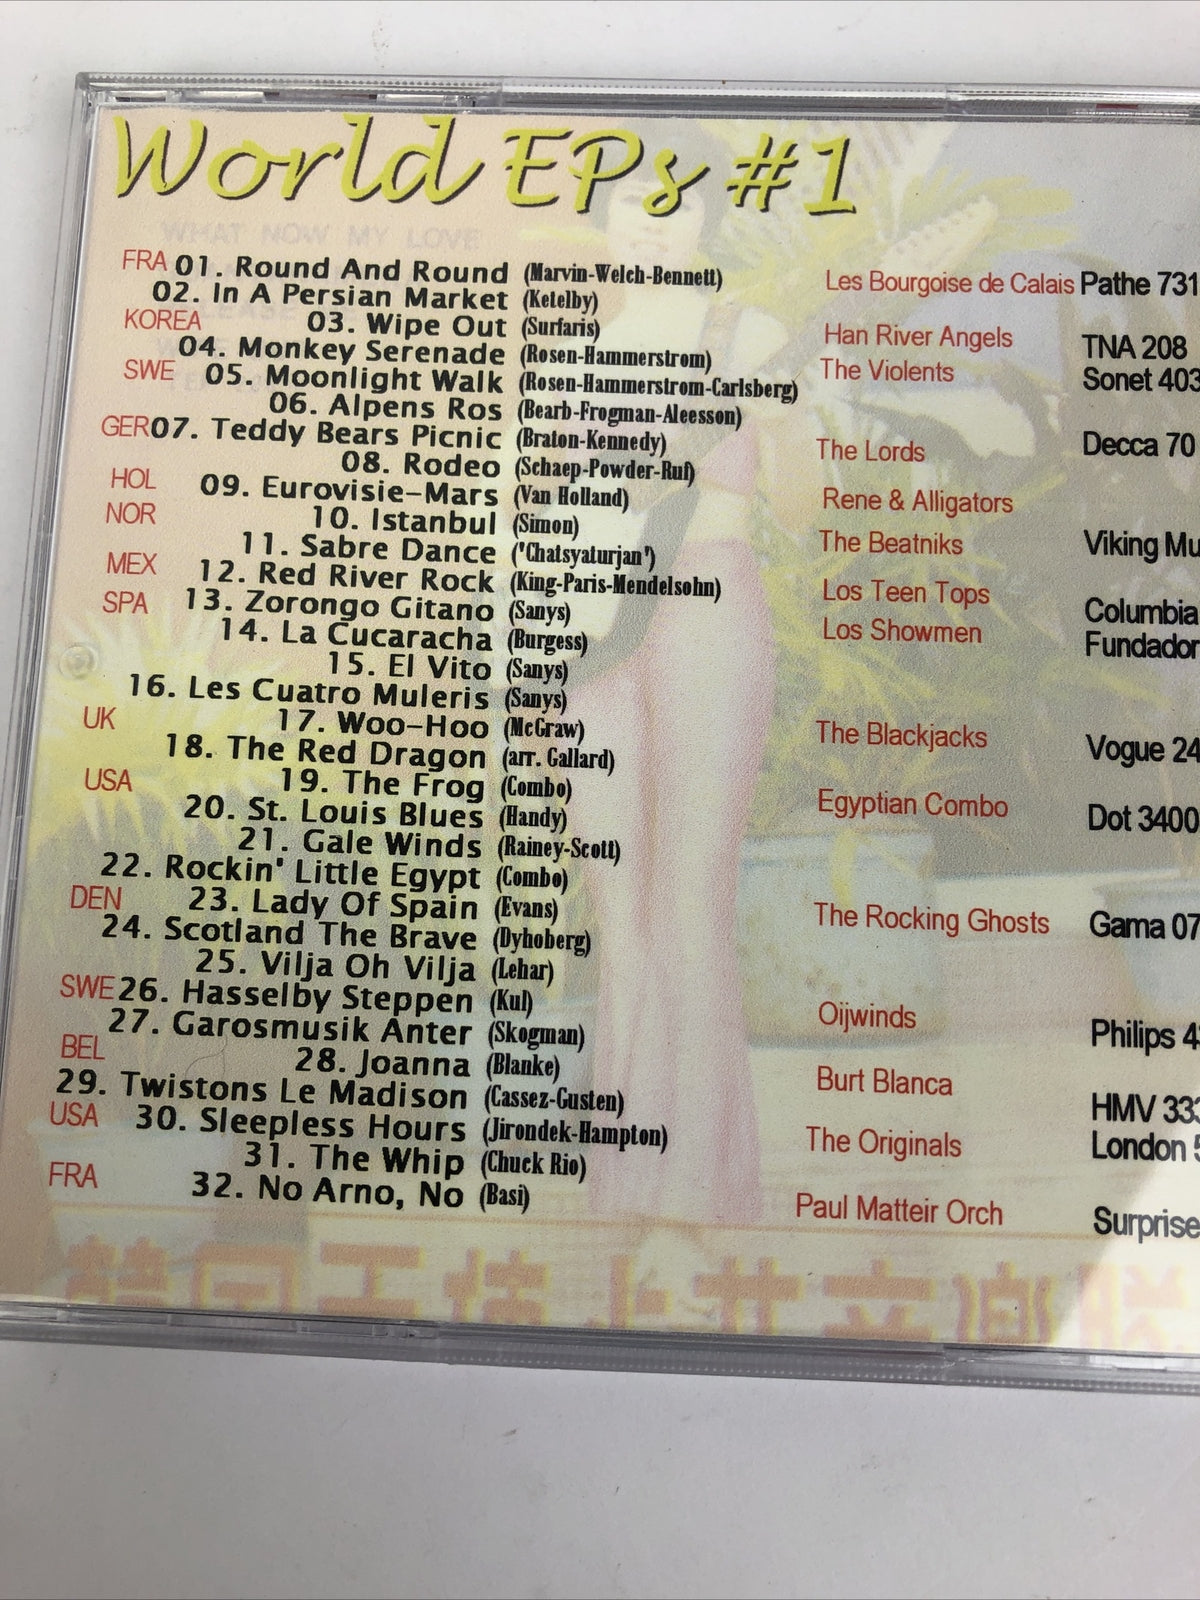 World EPs #1
WHAT NOW MY LOVE
FRA 01. Round And Round (Marvin-Welch-Bennett) Les Bourgoise de Calais Pathe 731
02. In A Persian Market (Ketelby)
KOREA 03. Wipe Out (Surfaris) Han River Angels TNA 208
04. Monkey Serenade (Rosen-Hammerstrom) The Violents Sonet 403
SWE 05. Moonlight Walk (Rosen-Hammerstrom-Carlsberg)
06. Alpens Ros (Bearb-Frogman-Aleesson)
GER 07. Teddy Bears Picnic (Braton-Kennedy) The Lords Decca 70
08. Rodeo (Schaep-Powder-Ruf)
HOL 09. Eurovisie-Mars (Van Holland) Rene & Alligators
NOR 10. Istanbul (Simon) The Beatniks Viking Mu
11. Sabre Dance ('Chatsyaturjan')
MEX 12. Red River Rock (King-Paris-Mendelsohn) Los Teen Tops Columbia
SPA 13. Zorongo Gitano (Sanys) Los Showmen Fundador
14. La Cucaracha (Burgess)
15. El Vito (Sanys)
16. Les Cuatro Muleris (Sanys)
UK 17. Woo-Hoo (McGraw) The Blackjacks Vogue 24
18. The Red Dragon (arr. Gallard)
USA 19. The Frog (Combo) Egyptian Combo Dot 3400
20. St. Louis Blues (Handy)
21. Gale Winds (Rainey-Scott)
22. Rockin' Little Egypt (Combo)
DEN 23. Lady Of Spain (Evans) The Rocking Ghosts Gama 07
24. Scotland The Brave (Dyhoberg)
25. Vilja Oh Vilja (Lehar)
SWE 26. Hasselby Steppen (Kul) Oijwinds Philips 4
27. Garosmusik Anter (Skogman)
BEL 28. Joanna (Blanke) Burt Blanca HMV 333
29. Twistons Le Madison (Cassez-Gusten)
USA 30. Sleepless Hours (Jirondek-Hampton) The Originals London 5
31. The Whip (Chuck Rio)
FRA 32. No Arno, No (Basi) Paul Matteir Orch Surprise